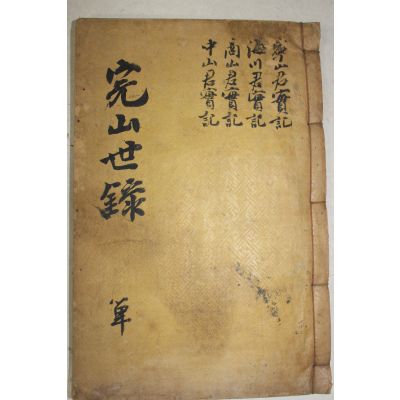 山君實記
海川君實記
高山君實記
中山君實記
完山世錄
単